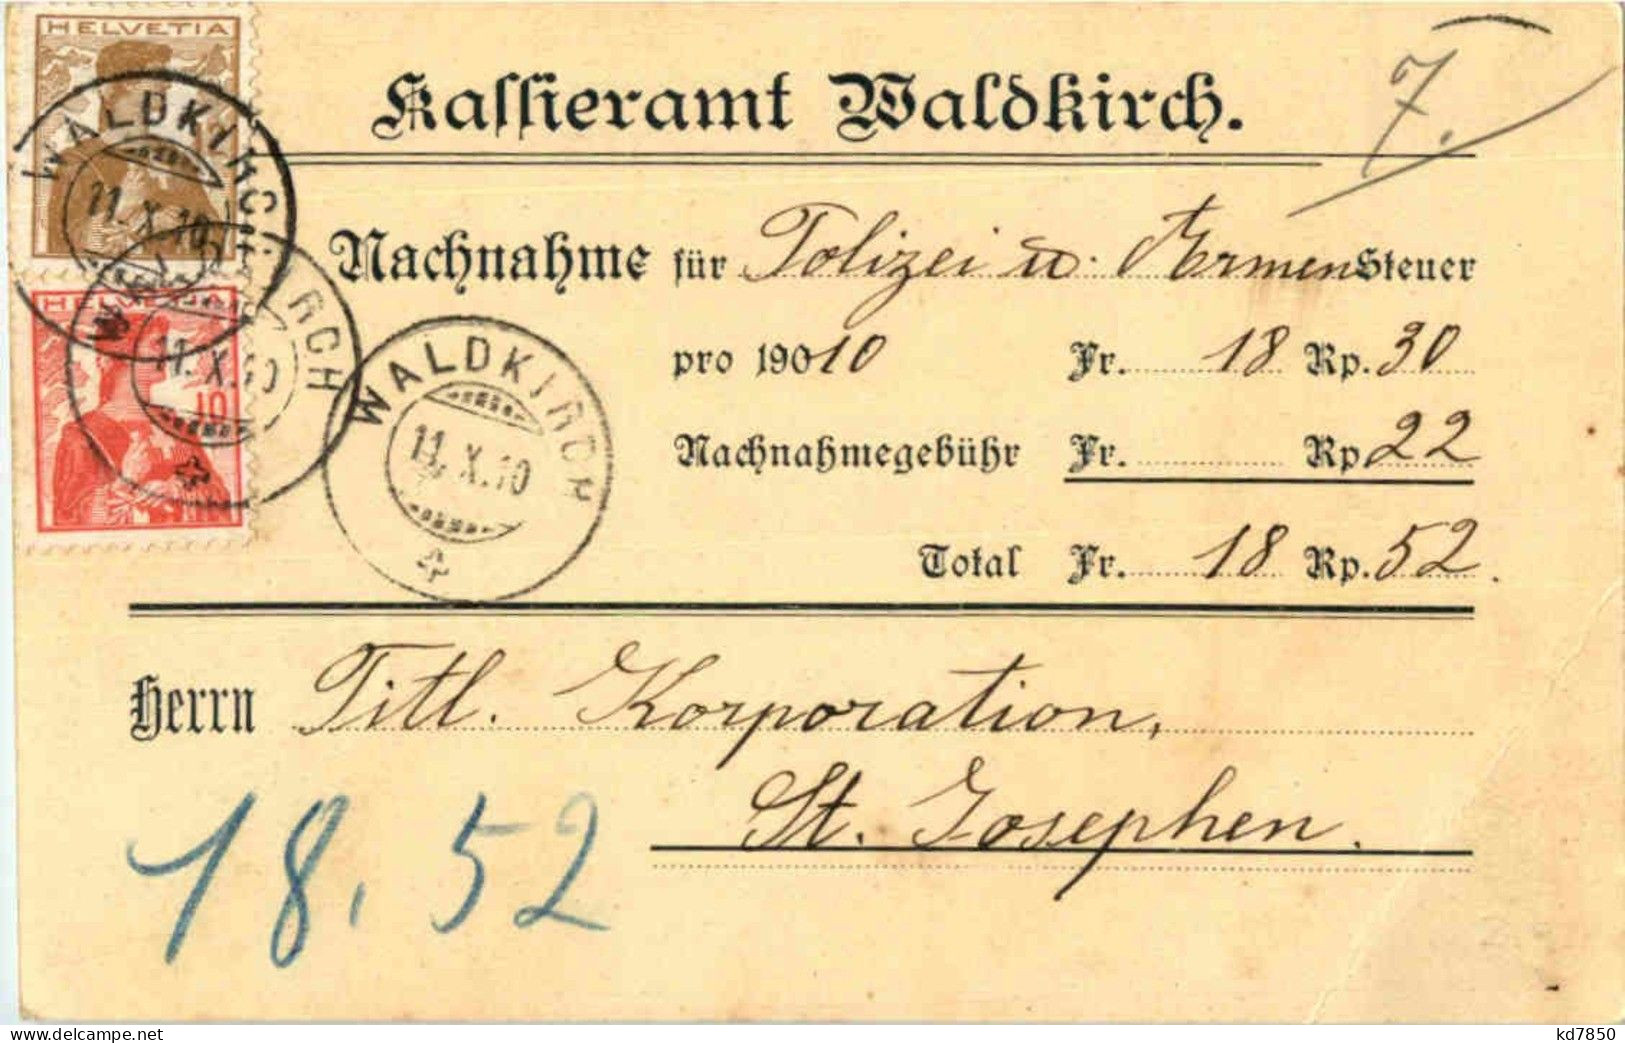 HELVETIA
WALDKIRCH
11.X.10
HELVETIA
10
WALDKIRCH
11.X.10
WALDKIRCH
11.X.10
7.
Kassieramt Waldkirch.
Nachnahme für Polizei u. Armen Steuer
pro 19010 Fr. 18 Rp. 30
Nachnahmegebühr Fr. Rp 22
Total Fr. 18 Rp. 52.
Herrn Titl. Korporation,
St. Josephen.
18.52
www.delcampe.net
kd7850